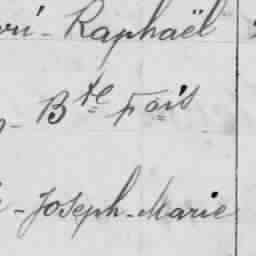 ri - Raphaël
- Bte Fois
- Joseph - Marie